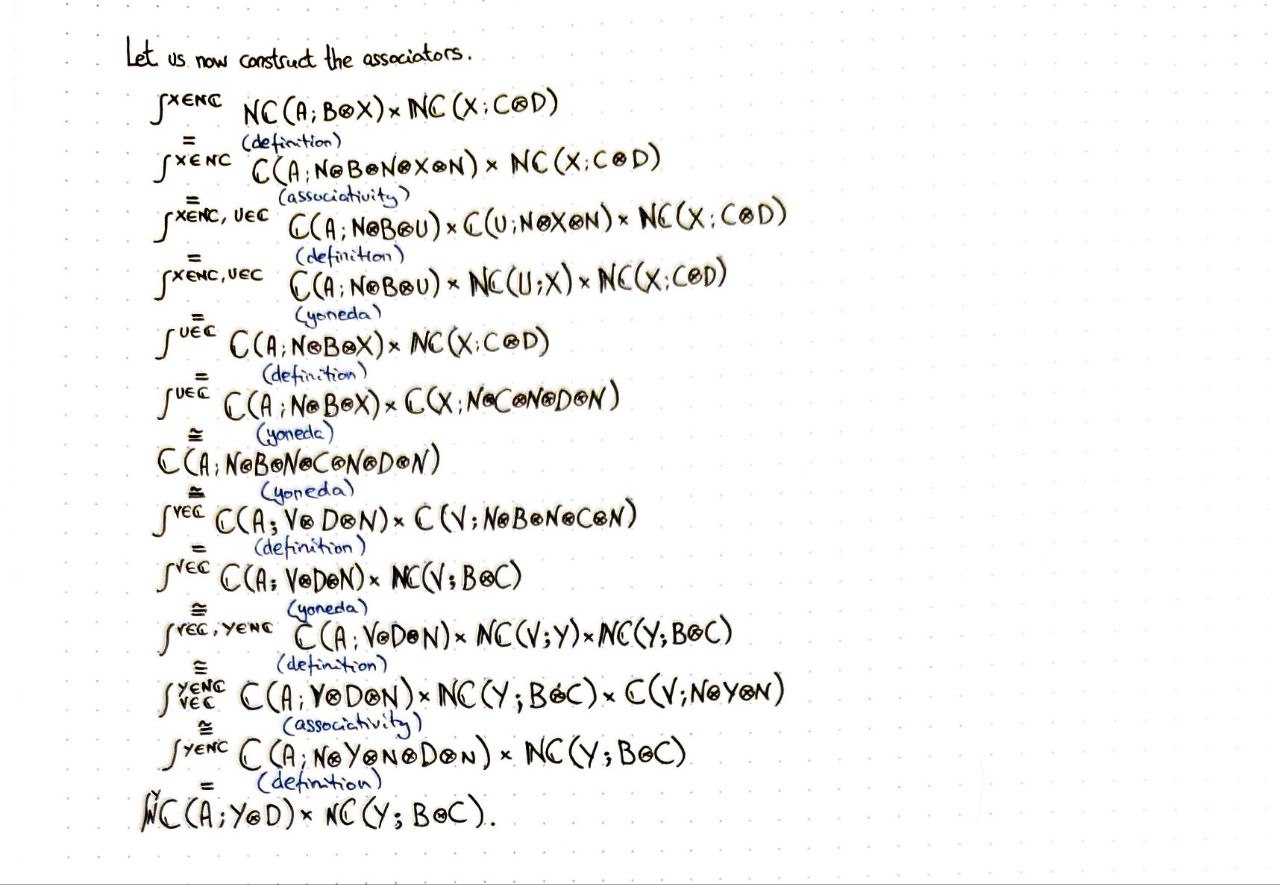 Let us now construct the associators.
∫^{X∈ℕℂ} ℕℂ(A; B⊗X) × ℕℂ(X; C⊗D)
= (definition)
∫^{X∈ℕℂ} ℂ(A; N⊗B⊗N⊗X⊗N) × ℕℂ(X; C⊗D)
= (associativity)
∫^{X∈ℕℂ, U∈ℂ} ℂ(A; N⊗B⊗U) × ℂ(U; N⊗X⊗N) × ℕℂ(X; C⊗D)
= (definition)
∫^{X∈ℕℂ, U∈ℂ} ℂ(A; N⊗B⊗U) × ℕℂ(U; X) × ℕℂ(X; C⊗D)
= (yoneda)
∫^{U∈ℂ} ℂ(A; N⊗B⊗X) × ℕℂ(X; C⊗D)
= (definition)
∫^{U∈ℂ} ℂ(A; N⊗B⊗X) × ℂ(X; N⊗C⊗N⊗D⊗N)
≅ (yoneda)
ℂ(A; N⊗B⊗N⊗C⊗N⊗D⊗N)
≅ (yoneda)
∫^{V∈ℂ} ℂ(A; V⊗D⊗N) × ℂ(V; N⊗B⊗N⊗C⊗N)
= (definition)
∫^{V∈ℂ} ℂ(A; V⊗D⊗N) × ℕℂ(V; B⊗C)
≅ (yoneda)
∫^{V∈ℂ, Y∈ℕℂ} ℂ(A; V⊗D⊗N) × ℕℂ(V; Y) × ℕℂ(Y; B⊗C)
≅ (definition)
∫^{Y∈ℕℂ, V∈ℂ} ℂ(A; V⊗D⊗N) × ℕℂ(Y; B⊗C) × ℂ(V; N⊗Y⊗N)
≅ (associativity)
∫^{Y∈ℕℂ} ℂ(A; N⊗Y⊗N⊗D⊗N) × ℕℂ(Y; B⊗C)
= (definition)
∫^{Y} ℕℂ(A; Y⊗D) × ℕℂ(Y; B⊗C).